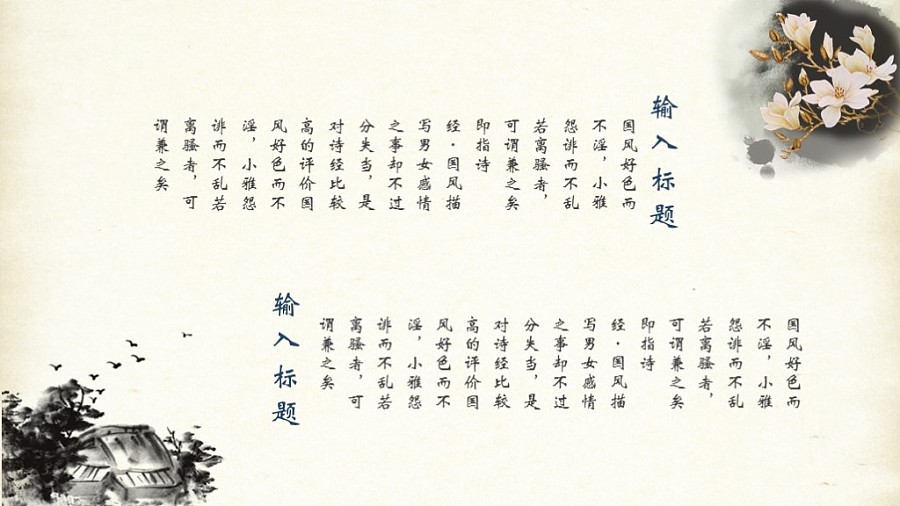 输入标题
国风好色而
不淫，小雅
怨诽而不乱
若离骚者，
可谓兼之矣
即指诗
经·国风描
写男女感情
之事却不过
分失当，是
对诗经比较
高的评价国
风好色而不
淫，小雅怨
诽而不乱若
离骚者，可
谓兼之矣
国风好色而
不淫，小雅
怨诽而不乱
若离骚者，
可谓兼之矣
即指诗
经·国风描
写男女感情
之事却不过
分失当，是
对诗经比较
高的评价国
风好色而不
淫，小雅怨
诽而不乱若
离骚者，可
谓兼之矣
输入标题